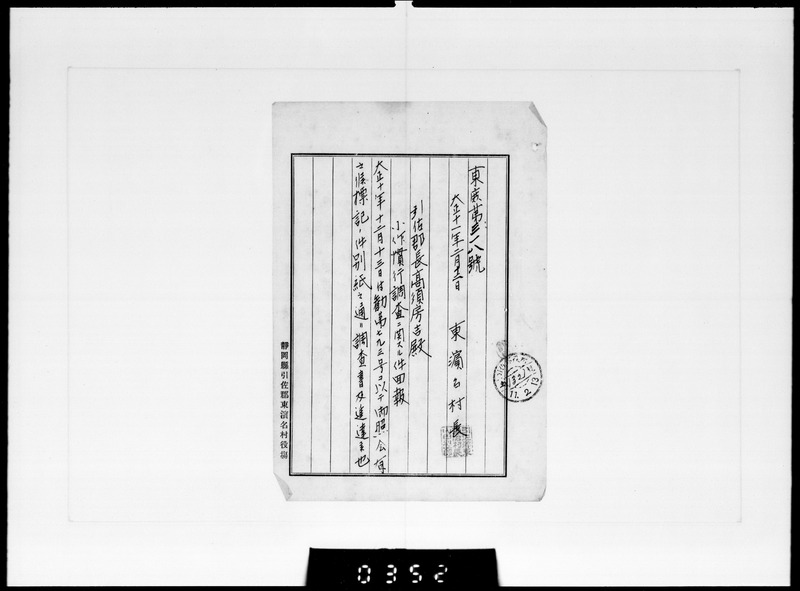 東庶第三一八號
大正十一年二月十三日
東濱名村長
引佐郡長高須房吉殿
小作慣行調査ニ関スル件回報
大正十年十二月十三日付勧第七九三号ヲ以テ御照会有
之候標記ノ件別紙之通リ調査書及進達候也
靜岡縣引佐郡東濱名村役場
11. 2. 13
0352